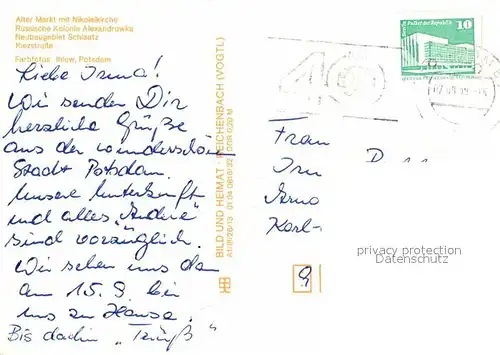 Alter Markt mit Nikolaikirche
Russische Kolonie Alexandrowka
Neubaugebiet Schlaatz
Kiezstraße
Farbfotos: Ihlow, Potsdam
Liebe Irma!
Wir senden Dir
herzliche Grüße
aus der wunderschön
Stadt Potsdam.
Unsere Unterkunft
und alles „Andre"
sind vorzüglich.
Wir sehen uns dann
am 15.9. bei
uns zu Hause.
Bis dahin „Tschüß"
BILD UND HEIMAT · REICHENBACH (VOGTL)
01 04 0616/32 DDR 0,20 M
10
Frau
Irm D
Arno
Karl-
9
privacy protection
Datenschutz